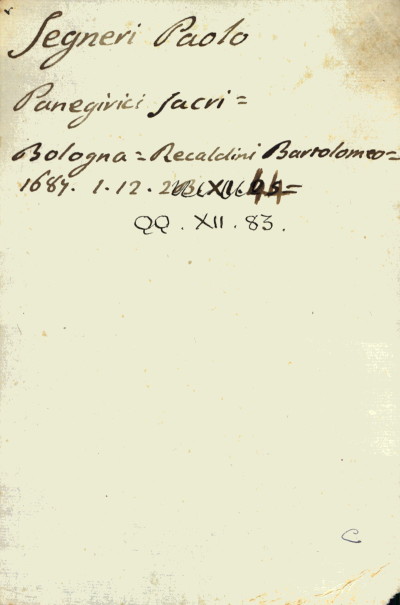 Segneri Paolo
Panegirici sacri =
Bologna = Recaldini Bartolomeo =
1684. 1. 12.
QQ. XII. 83.
C